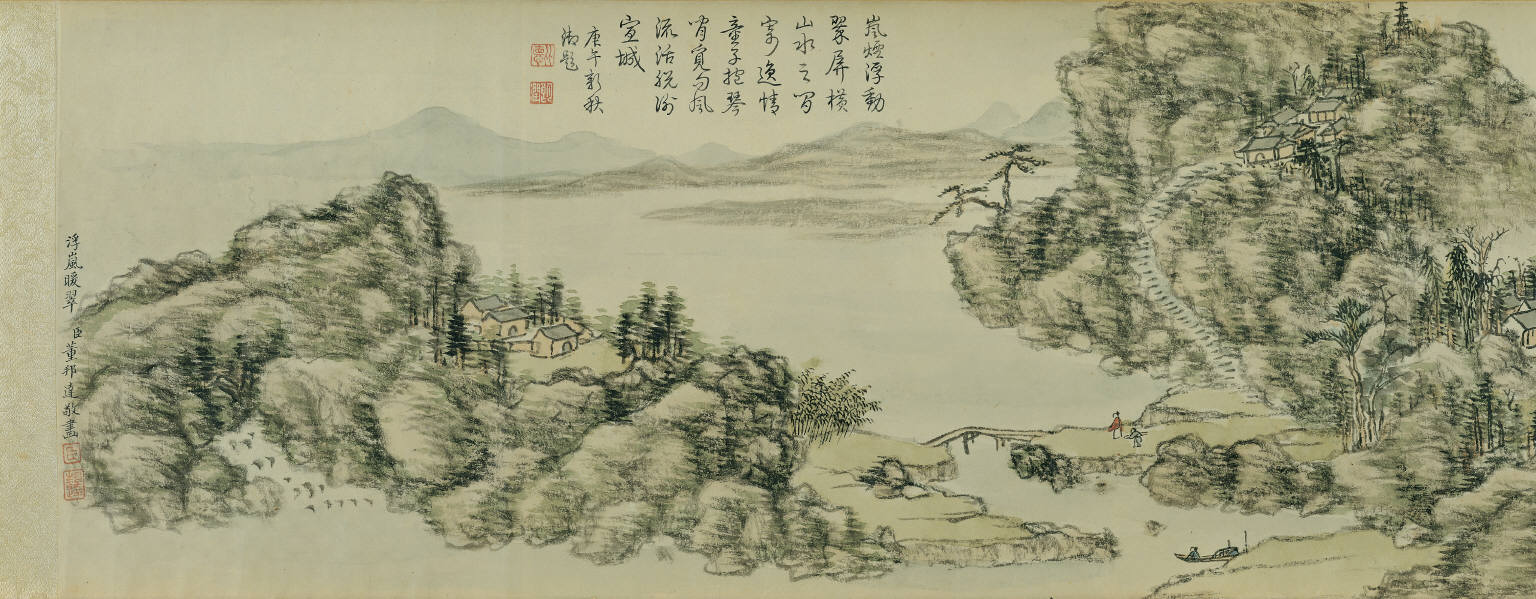 嵐煙浮動
翠屏橫
山水之間
寄逸情
童子抱琴
覓句風
流活脫謝
宣城
庚午新秋
御題
浮嵐暖翠 臣董邦達敬畫